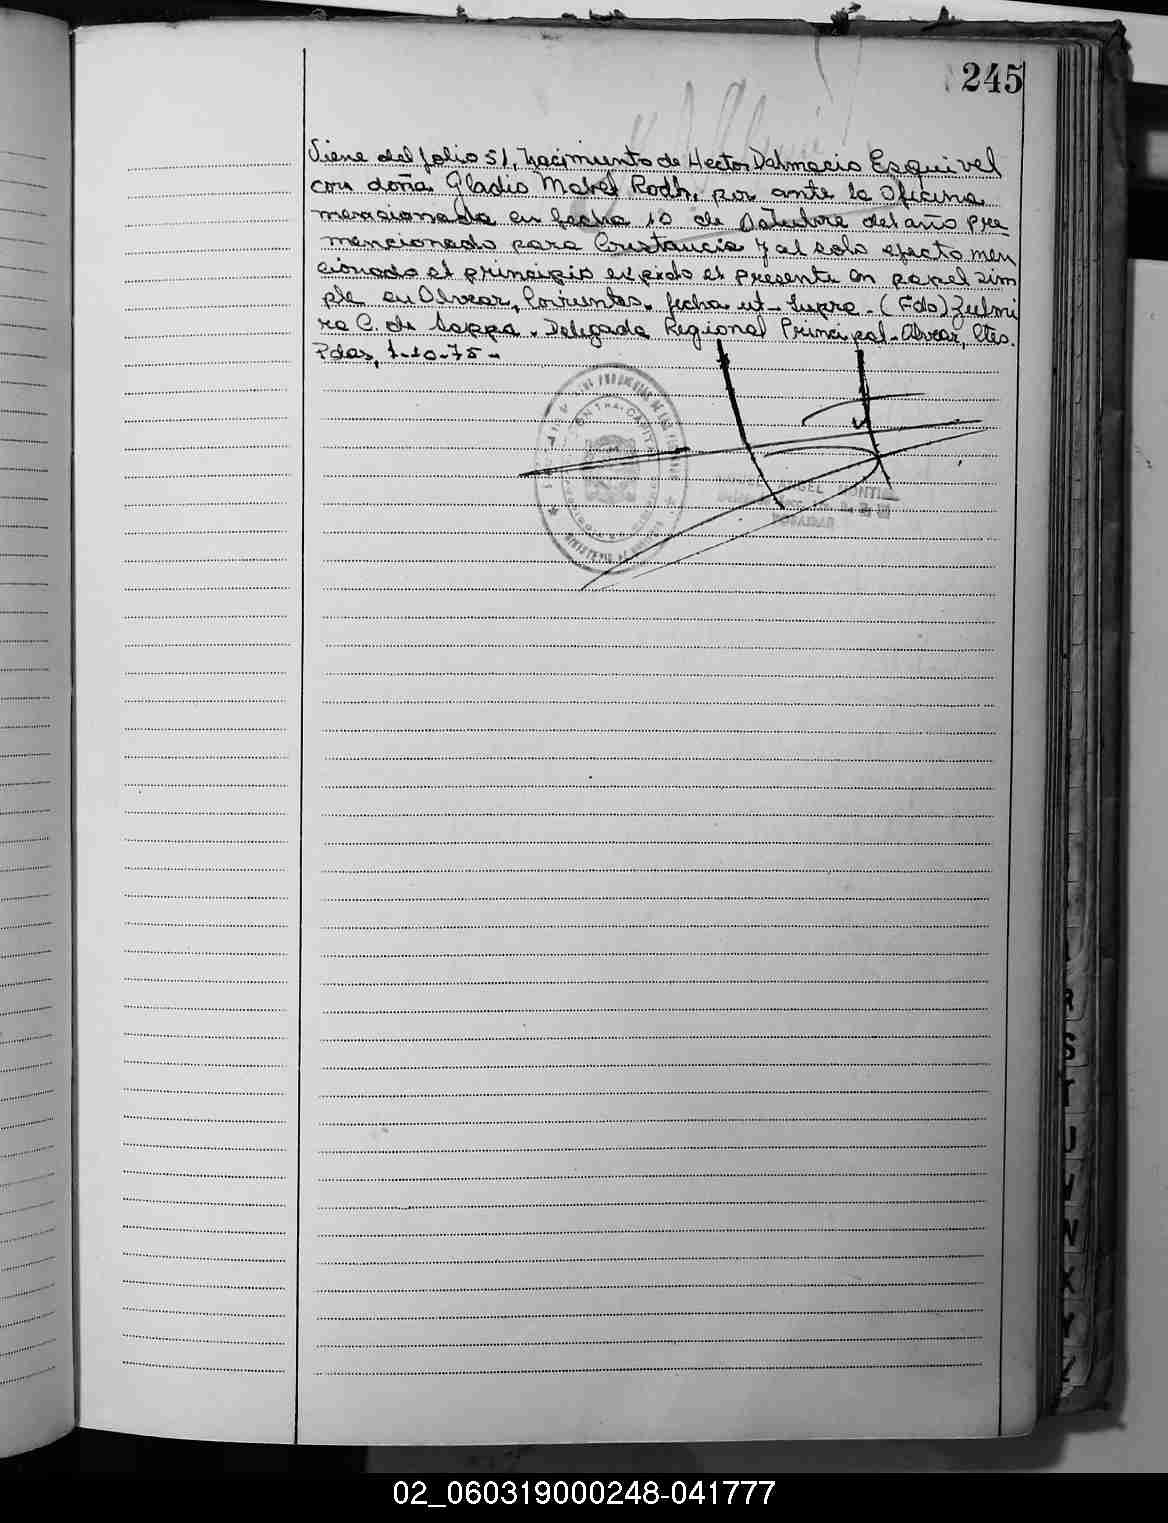 245
Viene del folio 51, Nacimiento de Hector Dalmacio Esquivel
con doña Gladis Mabel Rodh, por ante la Oficina
mencionada en fecha 10 de Octubre del año pre
mencionado para Constancia y al solo efecto men
cionado al principio expido el presente en papel sim
ple en Alvear, Corrientes. fecha ut-supra. (Fdo) Zulmi
ra C. de Sappa. Delegada Regional Principal. Alvear, Ctes.
Pdas, 1-10-75-
ANGEL
R
S
T
U
V
W
X
Y
Z
02_060319000248-041777